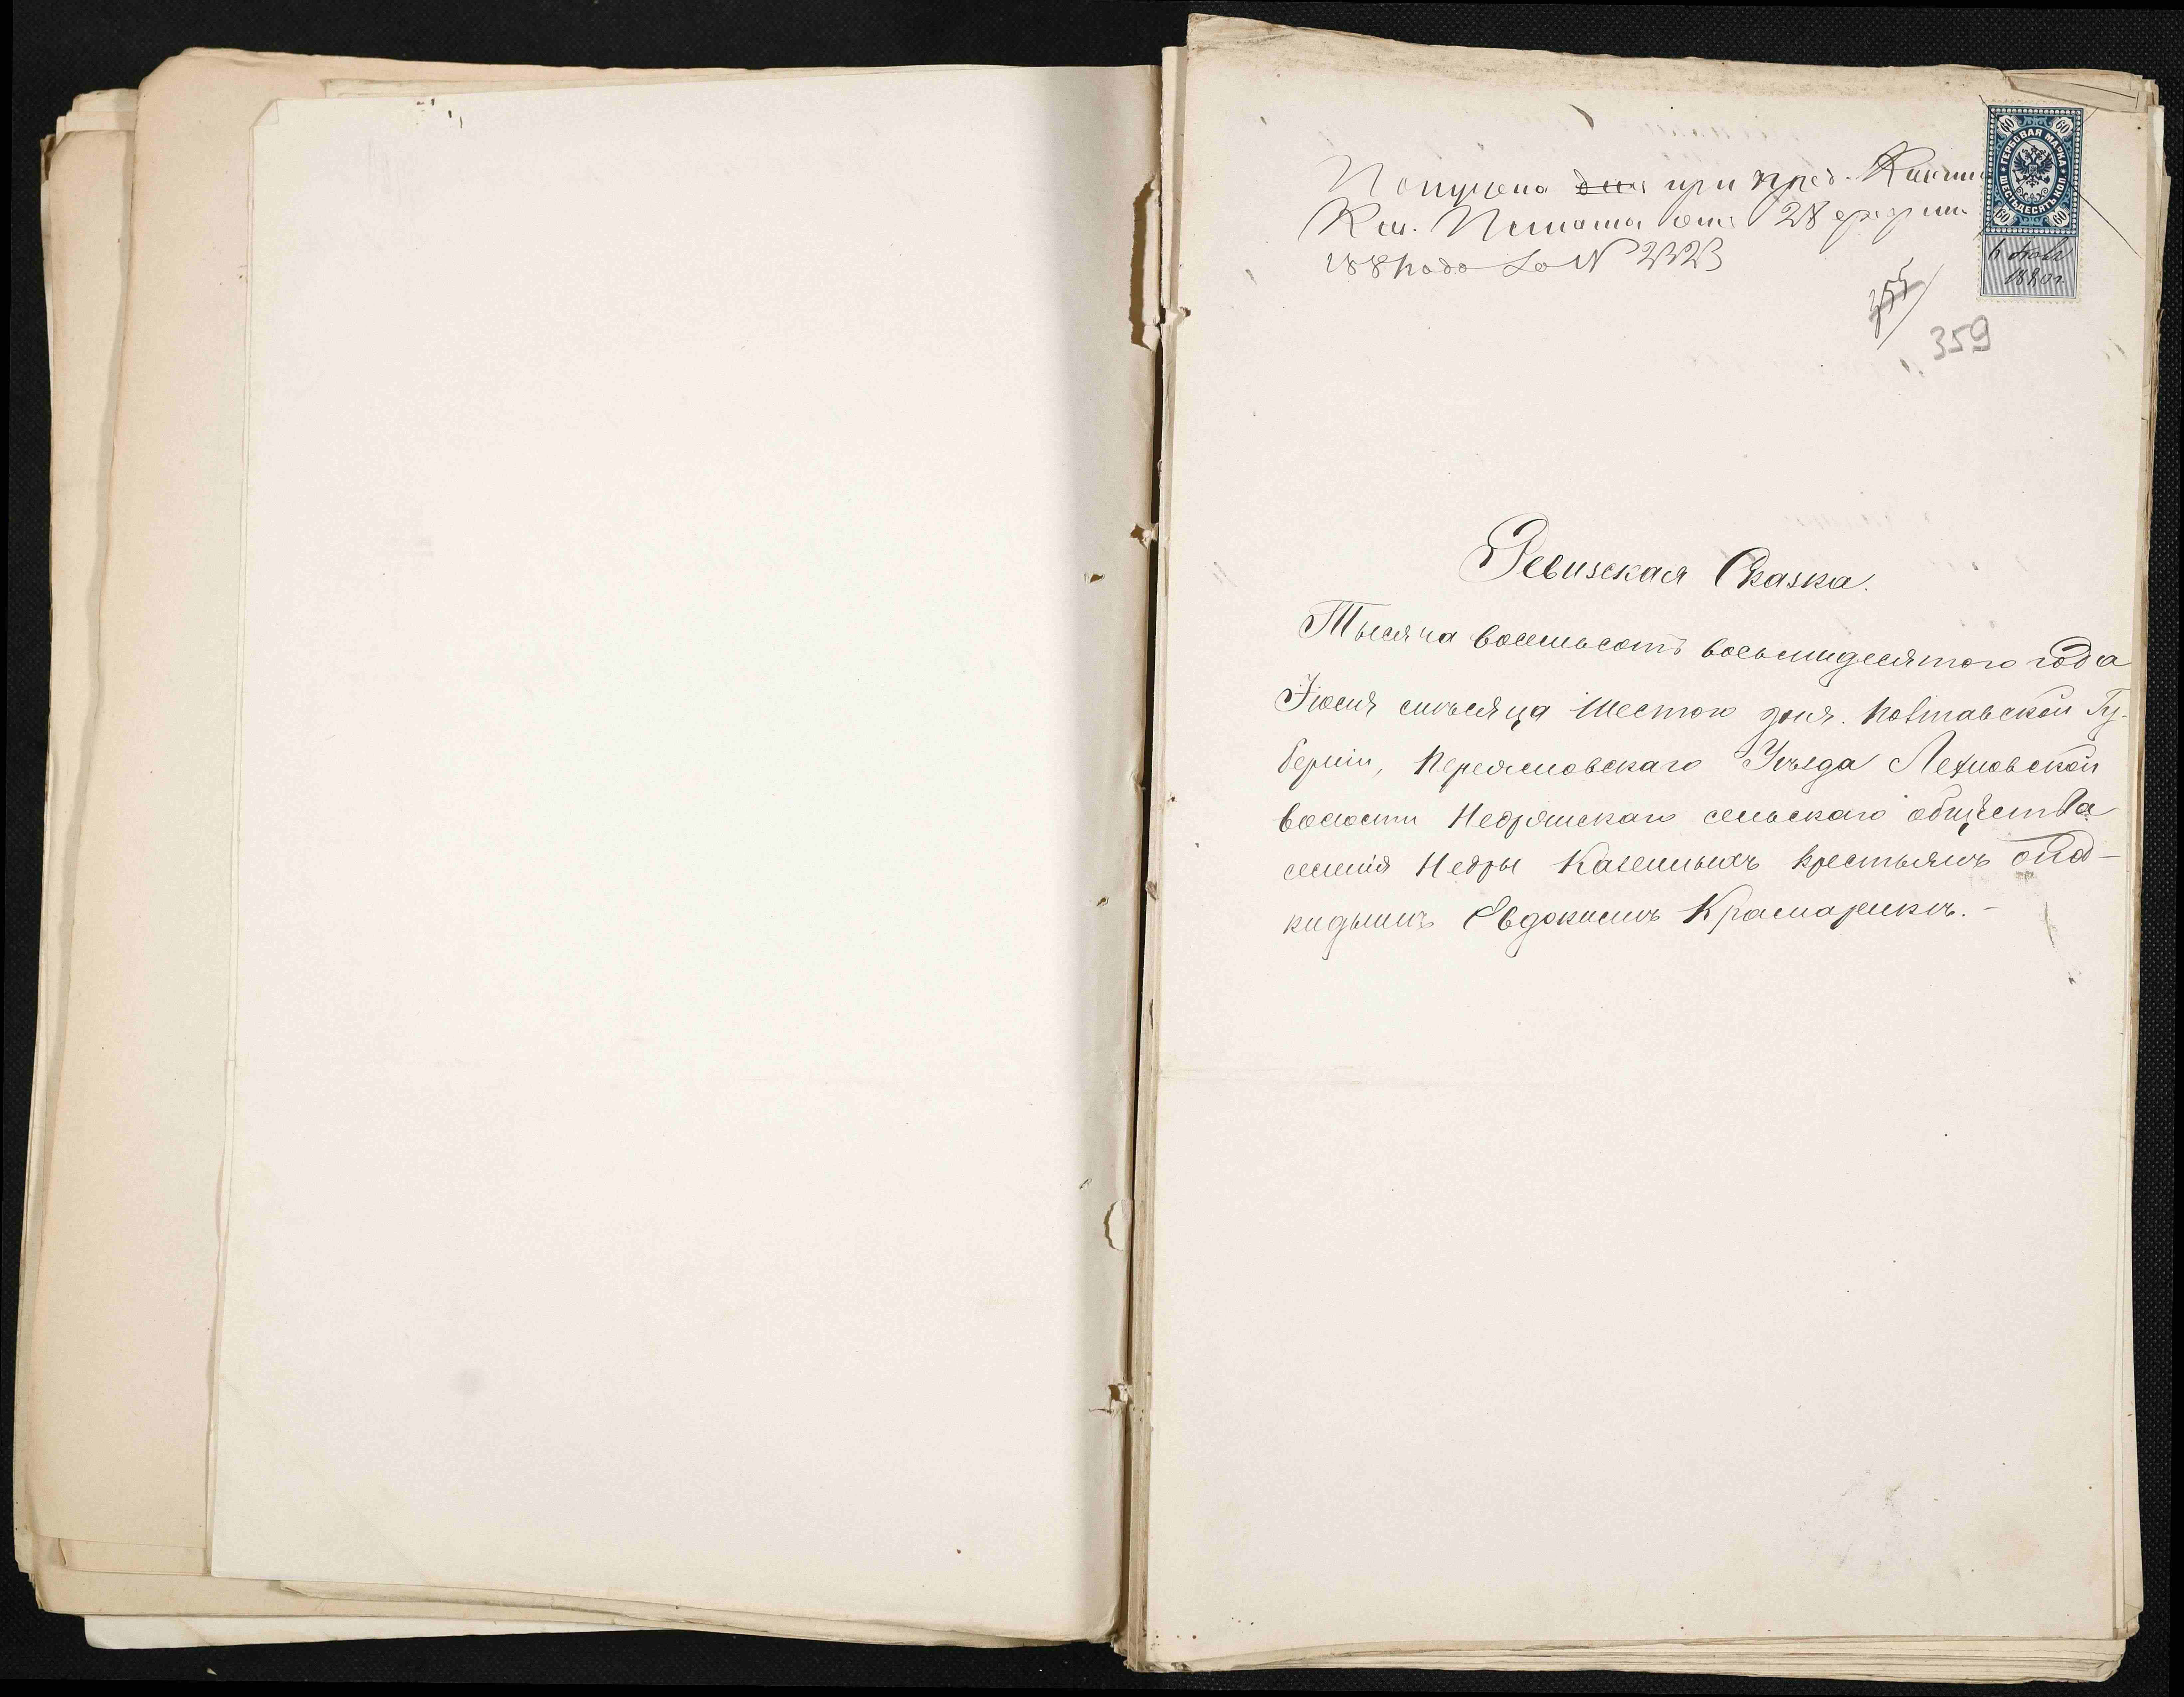 Получена при пред. Казен.
Каз. Палаты отъ 28
188 года за № 2223
ГЕРБОВАЯ МАРКА
ШЕСТЬДЕСЯТЪ КОП.
60 60
60 60
6 Ноя
1880 г.
355
359
Ревизская Сказка.
Тысяча восемьсотъ восьмидесятого года
Іюня мѣсяца шестого дня. Полтавской Гу-
берніи, Переяславскаго Уѣзда Лехновской
волости Недрянскаго сельскаго общества
селенія Недры Казенныхъ крестьянъ о под-
кидышѣ Евдокимѣ Крамарикѣ.